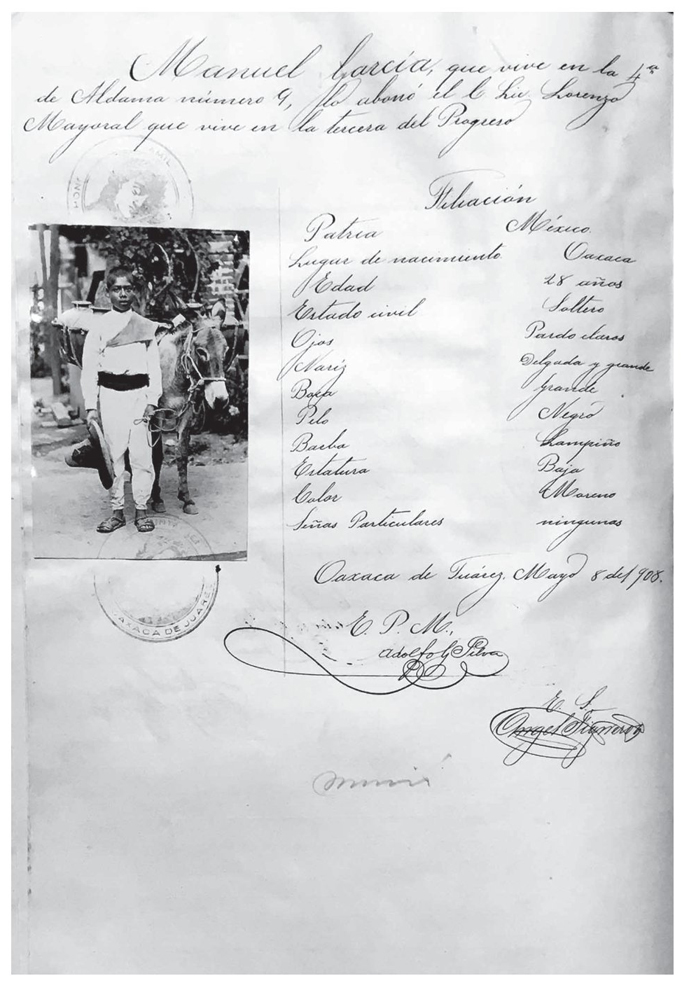 Manuel García, que vive en la 4ª
de Aldama número 9, lo abonó el C Lic. Lorenzo
Mayoral que vive en la tercera del Progreso
Filiación
Patria México.
Lugar de nacimiento Oaxaca
Edad 28 años
Estado civil Soltero
Ojos Pardo claros
Nariz Delgada y grande
Boca grande
Pelo Negro
Barba Lampiño
Estatura Baja
Color Moreno
Señas Particulares ningunas
Oaxaca de Juárez, Mayo 8 de 1908.
E. P. M.,
Adolfo G Silva
E. S.
Angel
OAXACA DE JUAREZ
murió